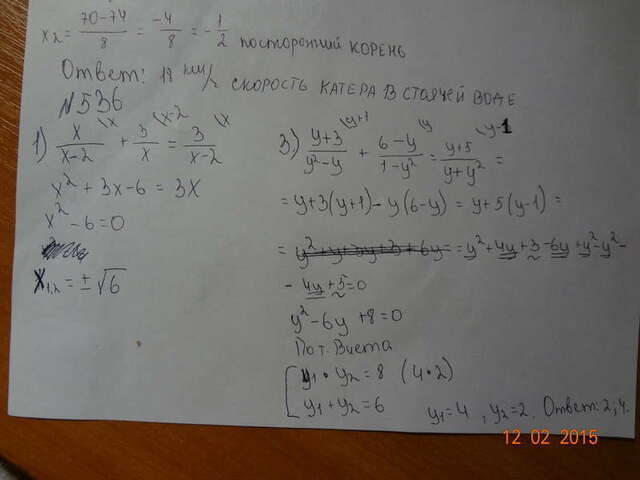 x₂ = (70-74)/8 = -4/8 = -1/2 посторонний корень
Ответ: 18 км/ч скорость катера в стоячей воде
№536
1) x/(x-2) \x + 3/x \x-2 = 3/(x-2) \x
x² + 3x - 6 = 3x
x² - 6 = 0
x₁,₂ = ±√6
3) (y+3)/(y²-y) \y+1 + (6-y)/(1-y²) \y = (y+5)/(y+y²) \y-1 =
= y+3(y+1) - y(6-y) = y+5(y-1) =
= y²+y+3y+3+6y = y²+4y+3-6y+y²-y²-
- 4y+5=0
y²-6y+8=0
По т. Виета
[ y₁ · y₂ = 8 (4·2)
y₁ + y₂ = 6
y₁=4, y₂=2. Ответ: 2; 4.
12 02 2015